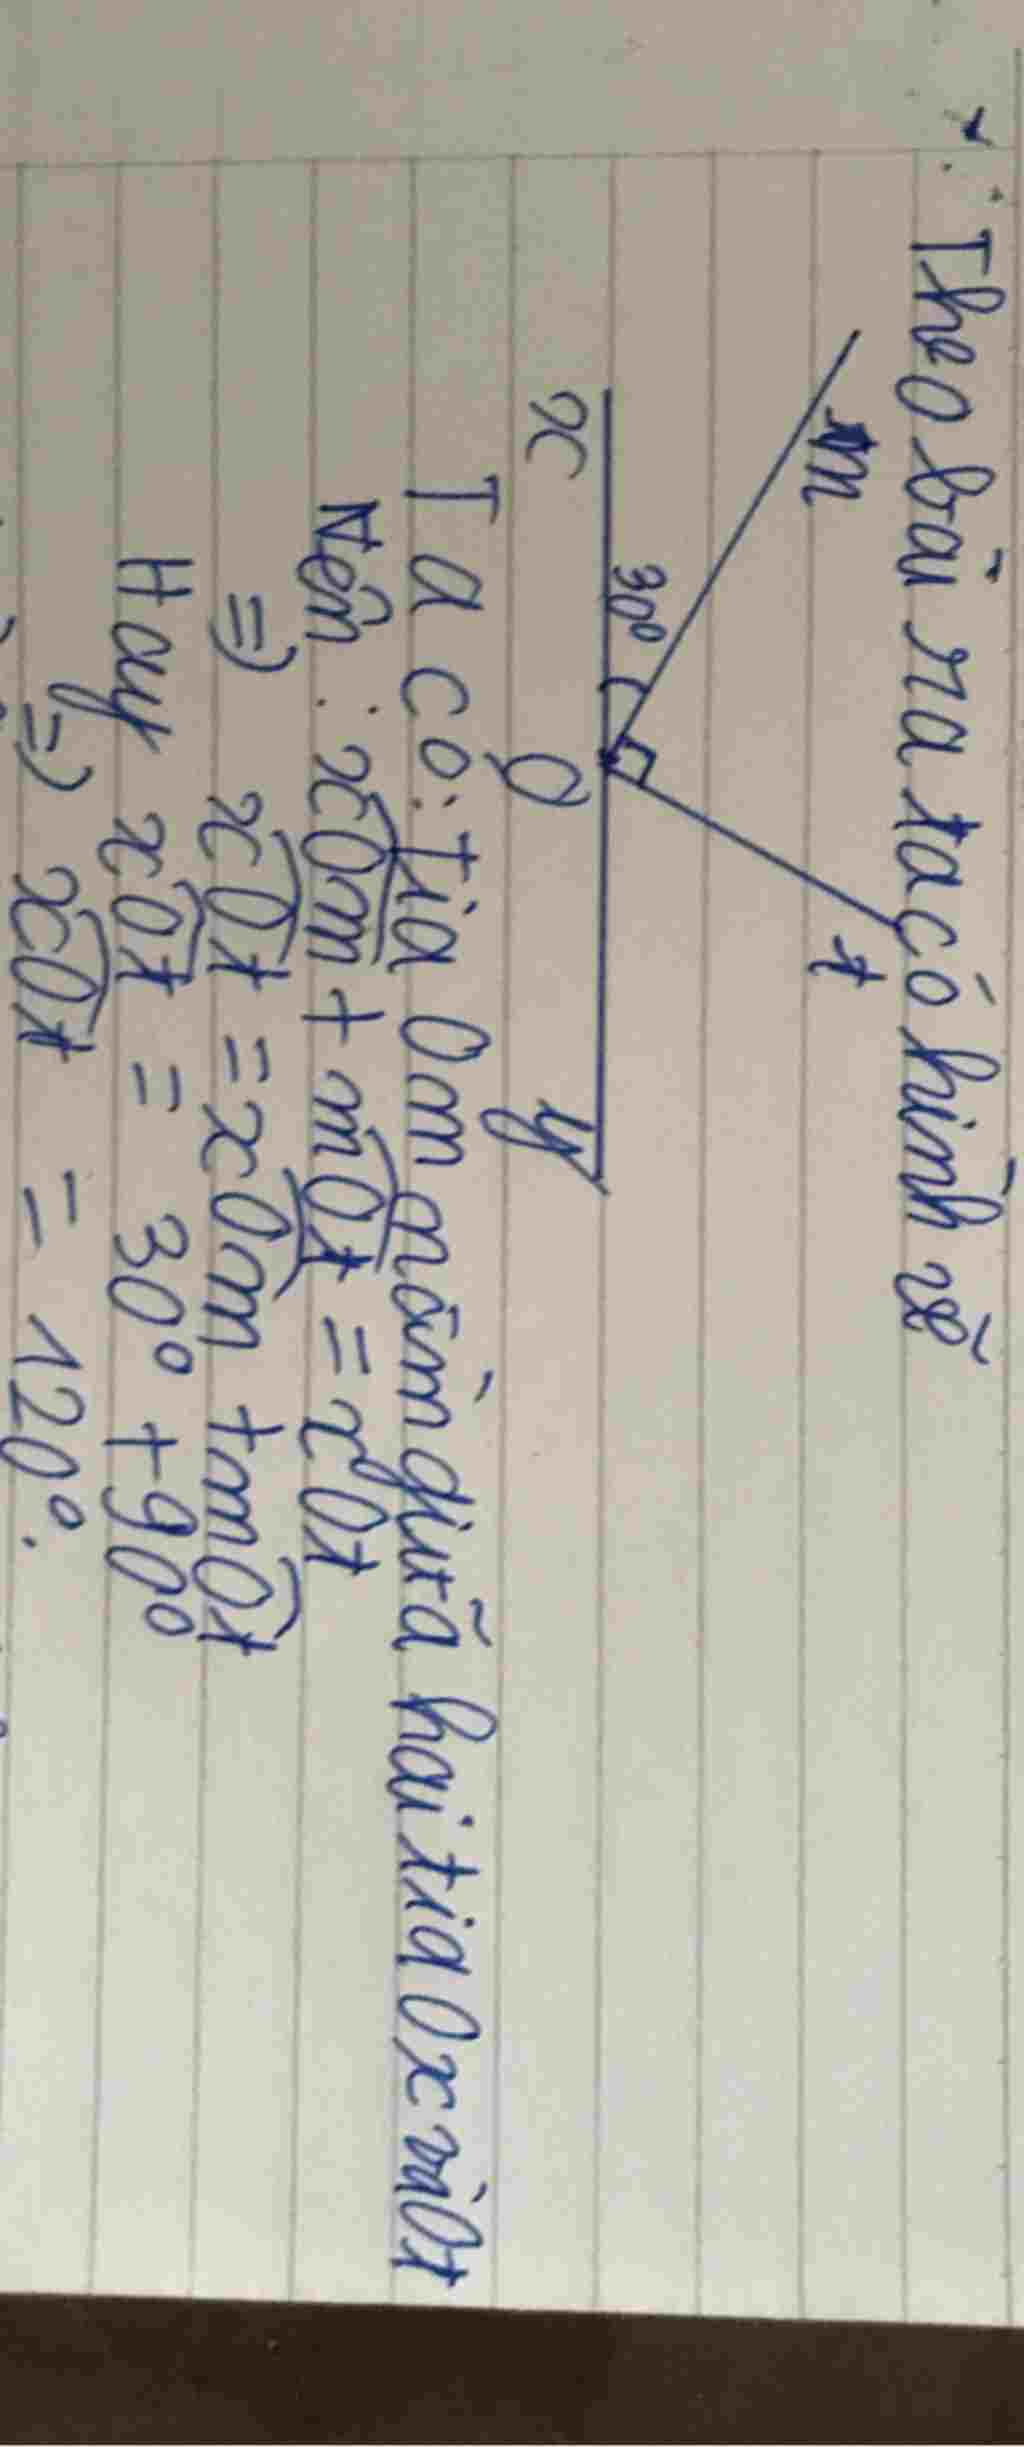 Theo bài ra ta có hình vẽ
m
t
30°
x
O
y
Ta có: tia Om nằm giữa hai tia Ox và Ot
Nên: xOm + mOt = xOt
=> xOt = xOm + mOt
Hay xOt = 30° + 90°
=> xOt = 120°.